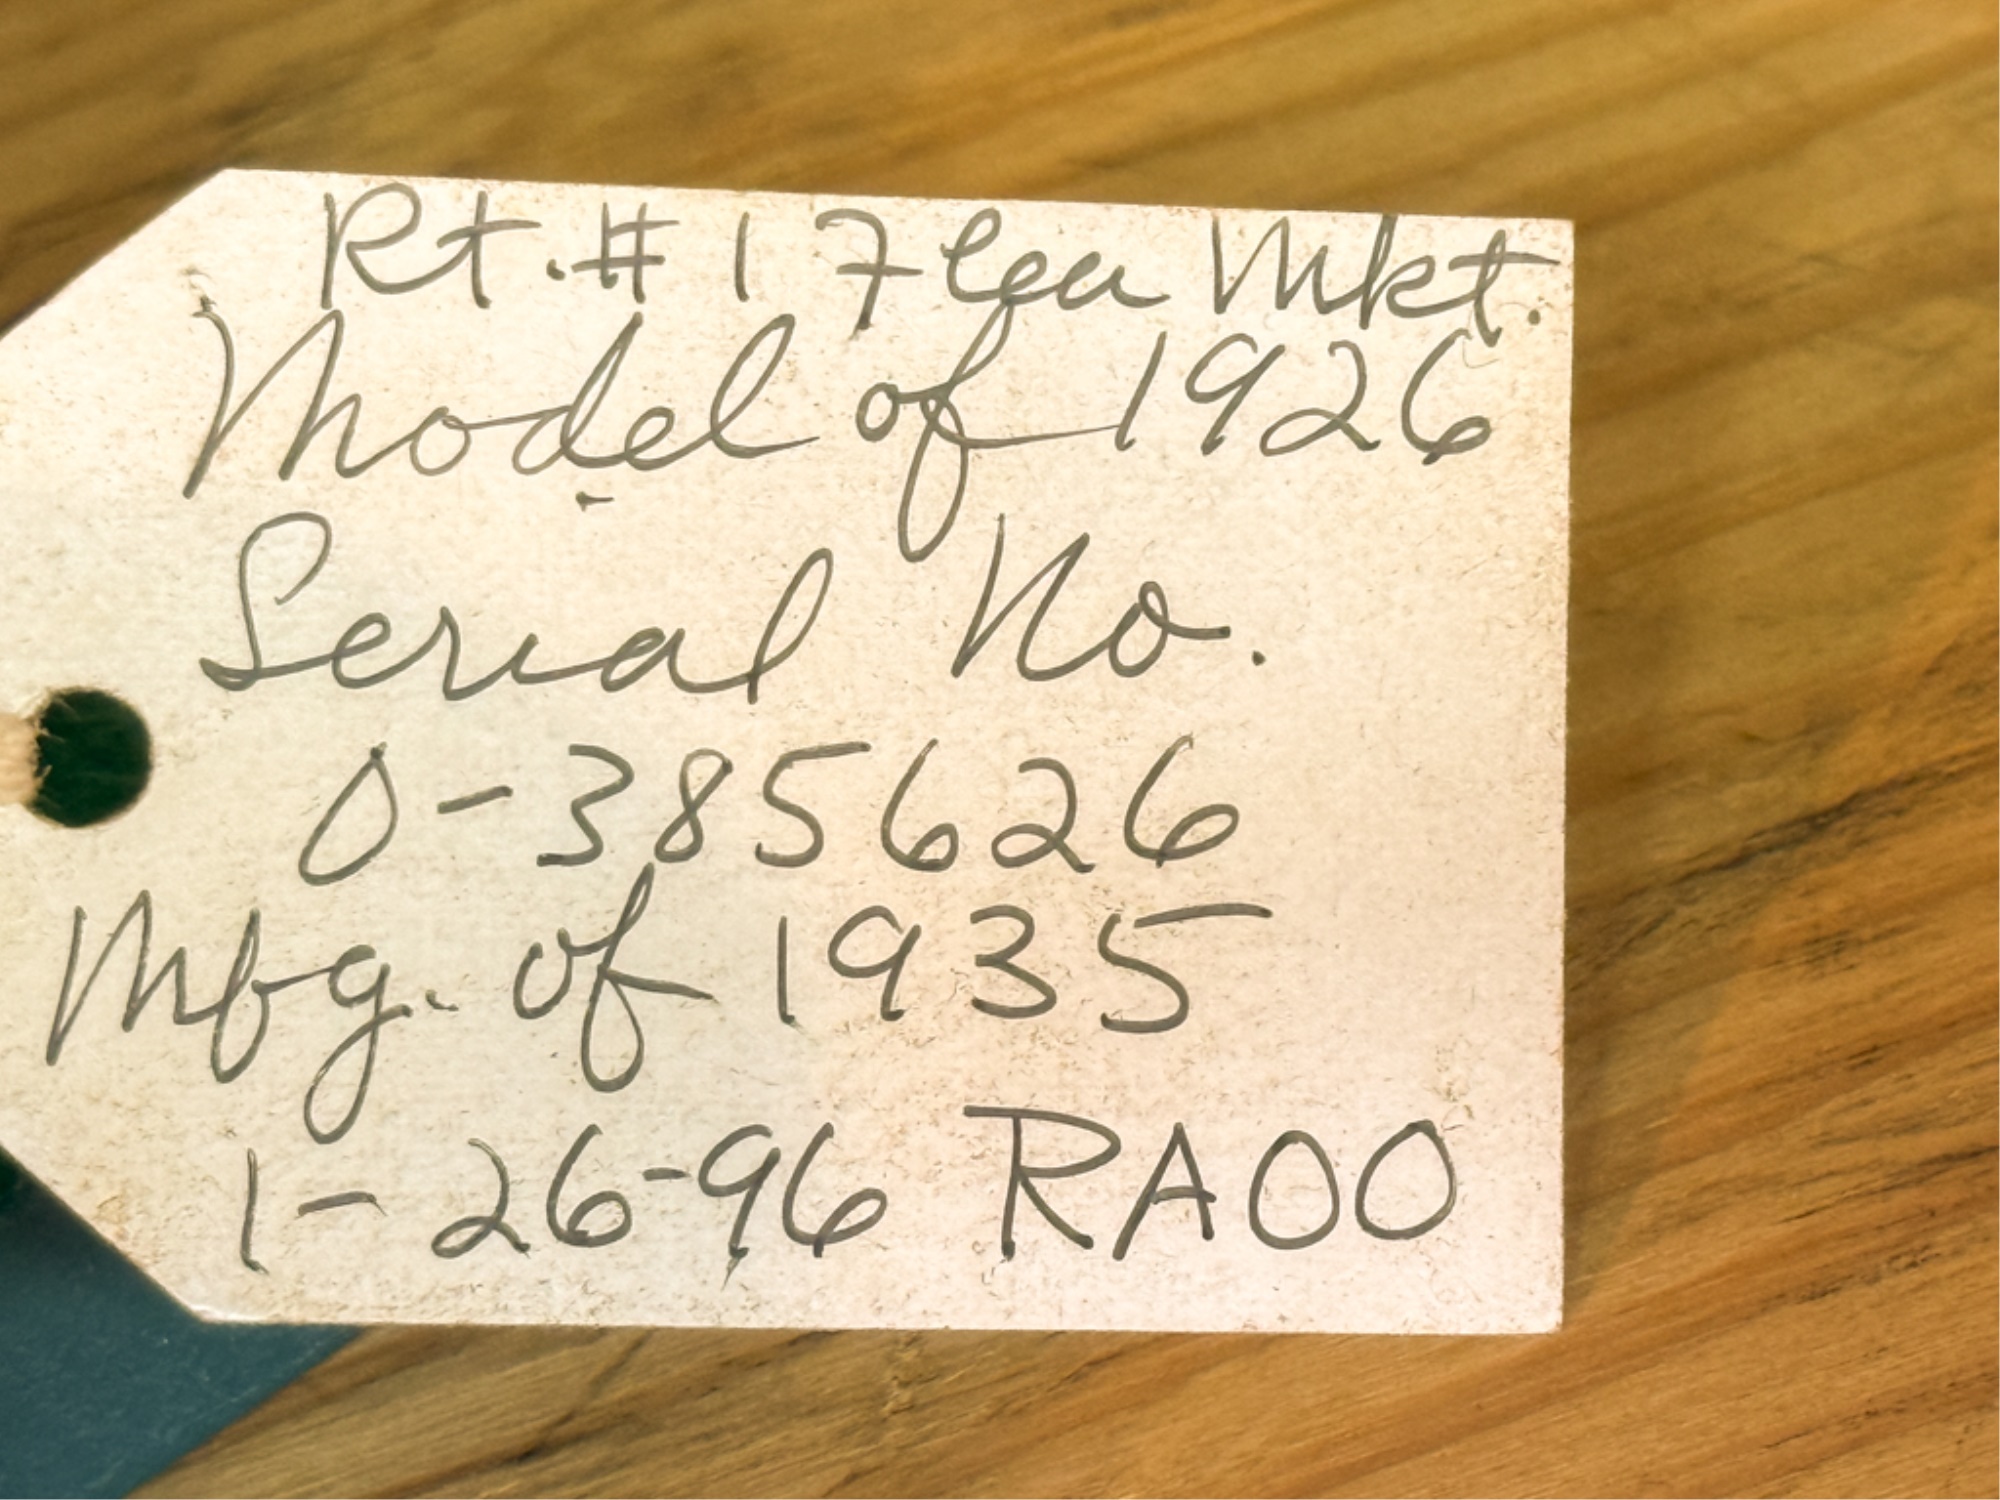 Rt. # 1 Flea Mkt.
Model of 1926
Serial No.
0-385626
Mfg. of 1935
1-26-96 RAOO